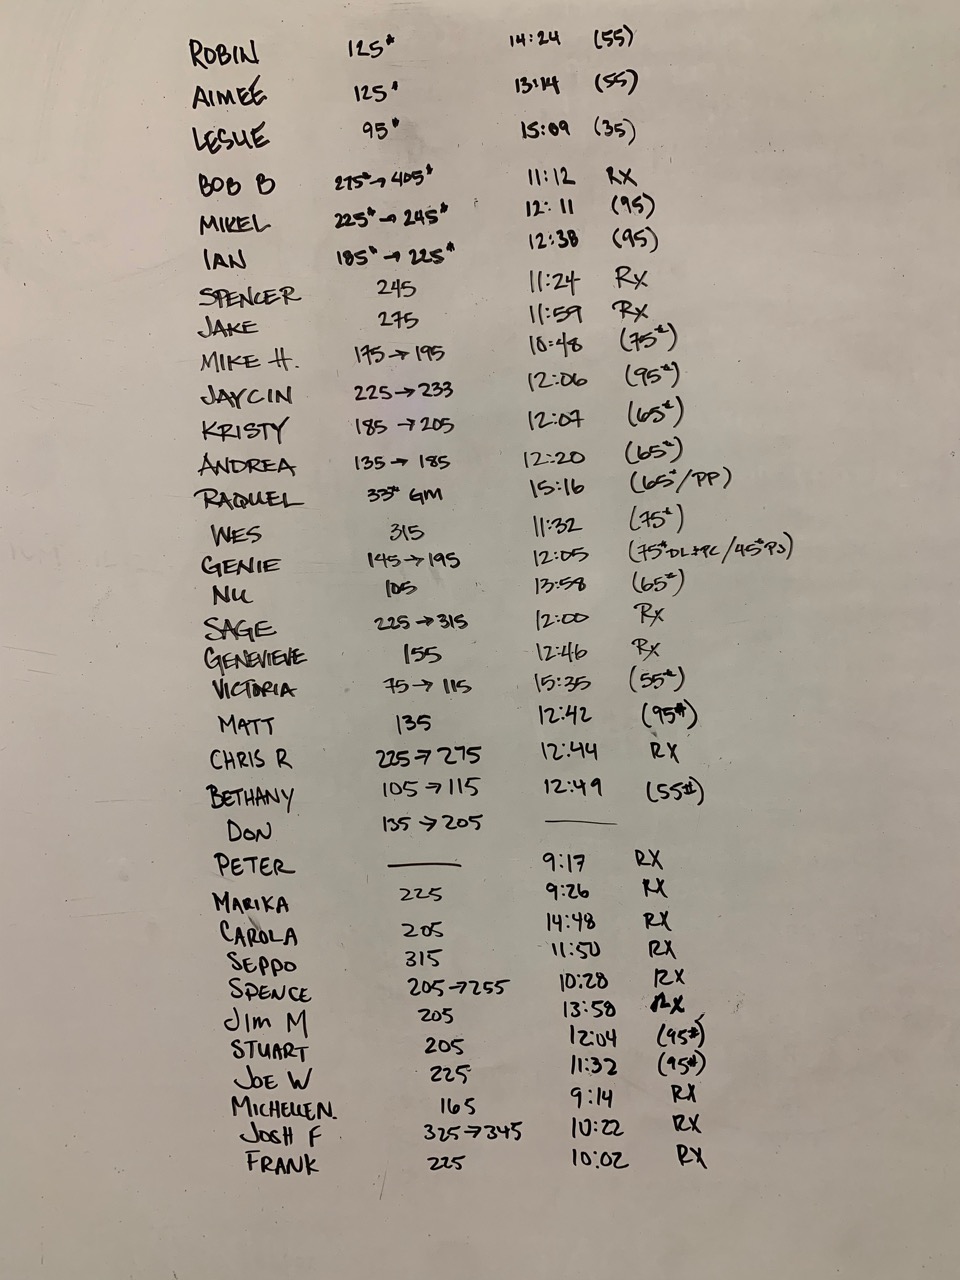 ROBIN 125# 14:24 (55)
AIMEÉ 125# 13:14 (55)
LESLIE 95# 15:09 (35)
BOB B 275#→405# 11:12 RX
MIKEL 225#→245# 12:11 (95)
IAN 185#→225# 12:38 (95)
SPENCER 245 11:24 RX
JAKE 275 11:59 RX
MIKE H. 175→195 10:48 (75#)
JAYCIN 225→233 12:06 (95#)
KRISTY 185→205 12:07 (65#)
ANDREA 135→185 12:20 (65#)
RAQUEL 33# GM 15:16 (65#/PP)
WES 315 11:32 (75#)
GENIE 145→195 12:05 (75#DL+PC/45#PJ)
NU 105 13:58 (65#)
SAGE 225→315 12:00 RX
GENEVIEVE 155 12:46 RX
VICTORIA 75→115 15:35 (55#)
MATT 135 12:42 (95#)
CHRIS R 225→275 12:44 RX
BETHANY 105→115 12:49 (55#)
DON 135→205 —
PETER — 9:17 RX
MARIKA 225 9:26 RX
CAROLA 205 14:48 RX
SEPPO 315 11:50 RX
SPENCE 205→255 10:28 RX
JIM M 205 13:58 RX
STUART 205 12:04 (95#)
JOE W 225 11:32 (95#)
MICHELLE N. 165 9:14 RX
JOSH F 325→345 10:22 RX
FRANK 225 10:02 RX